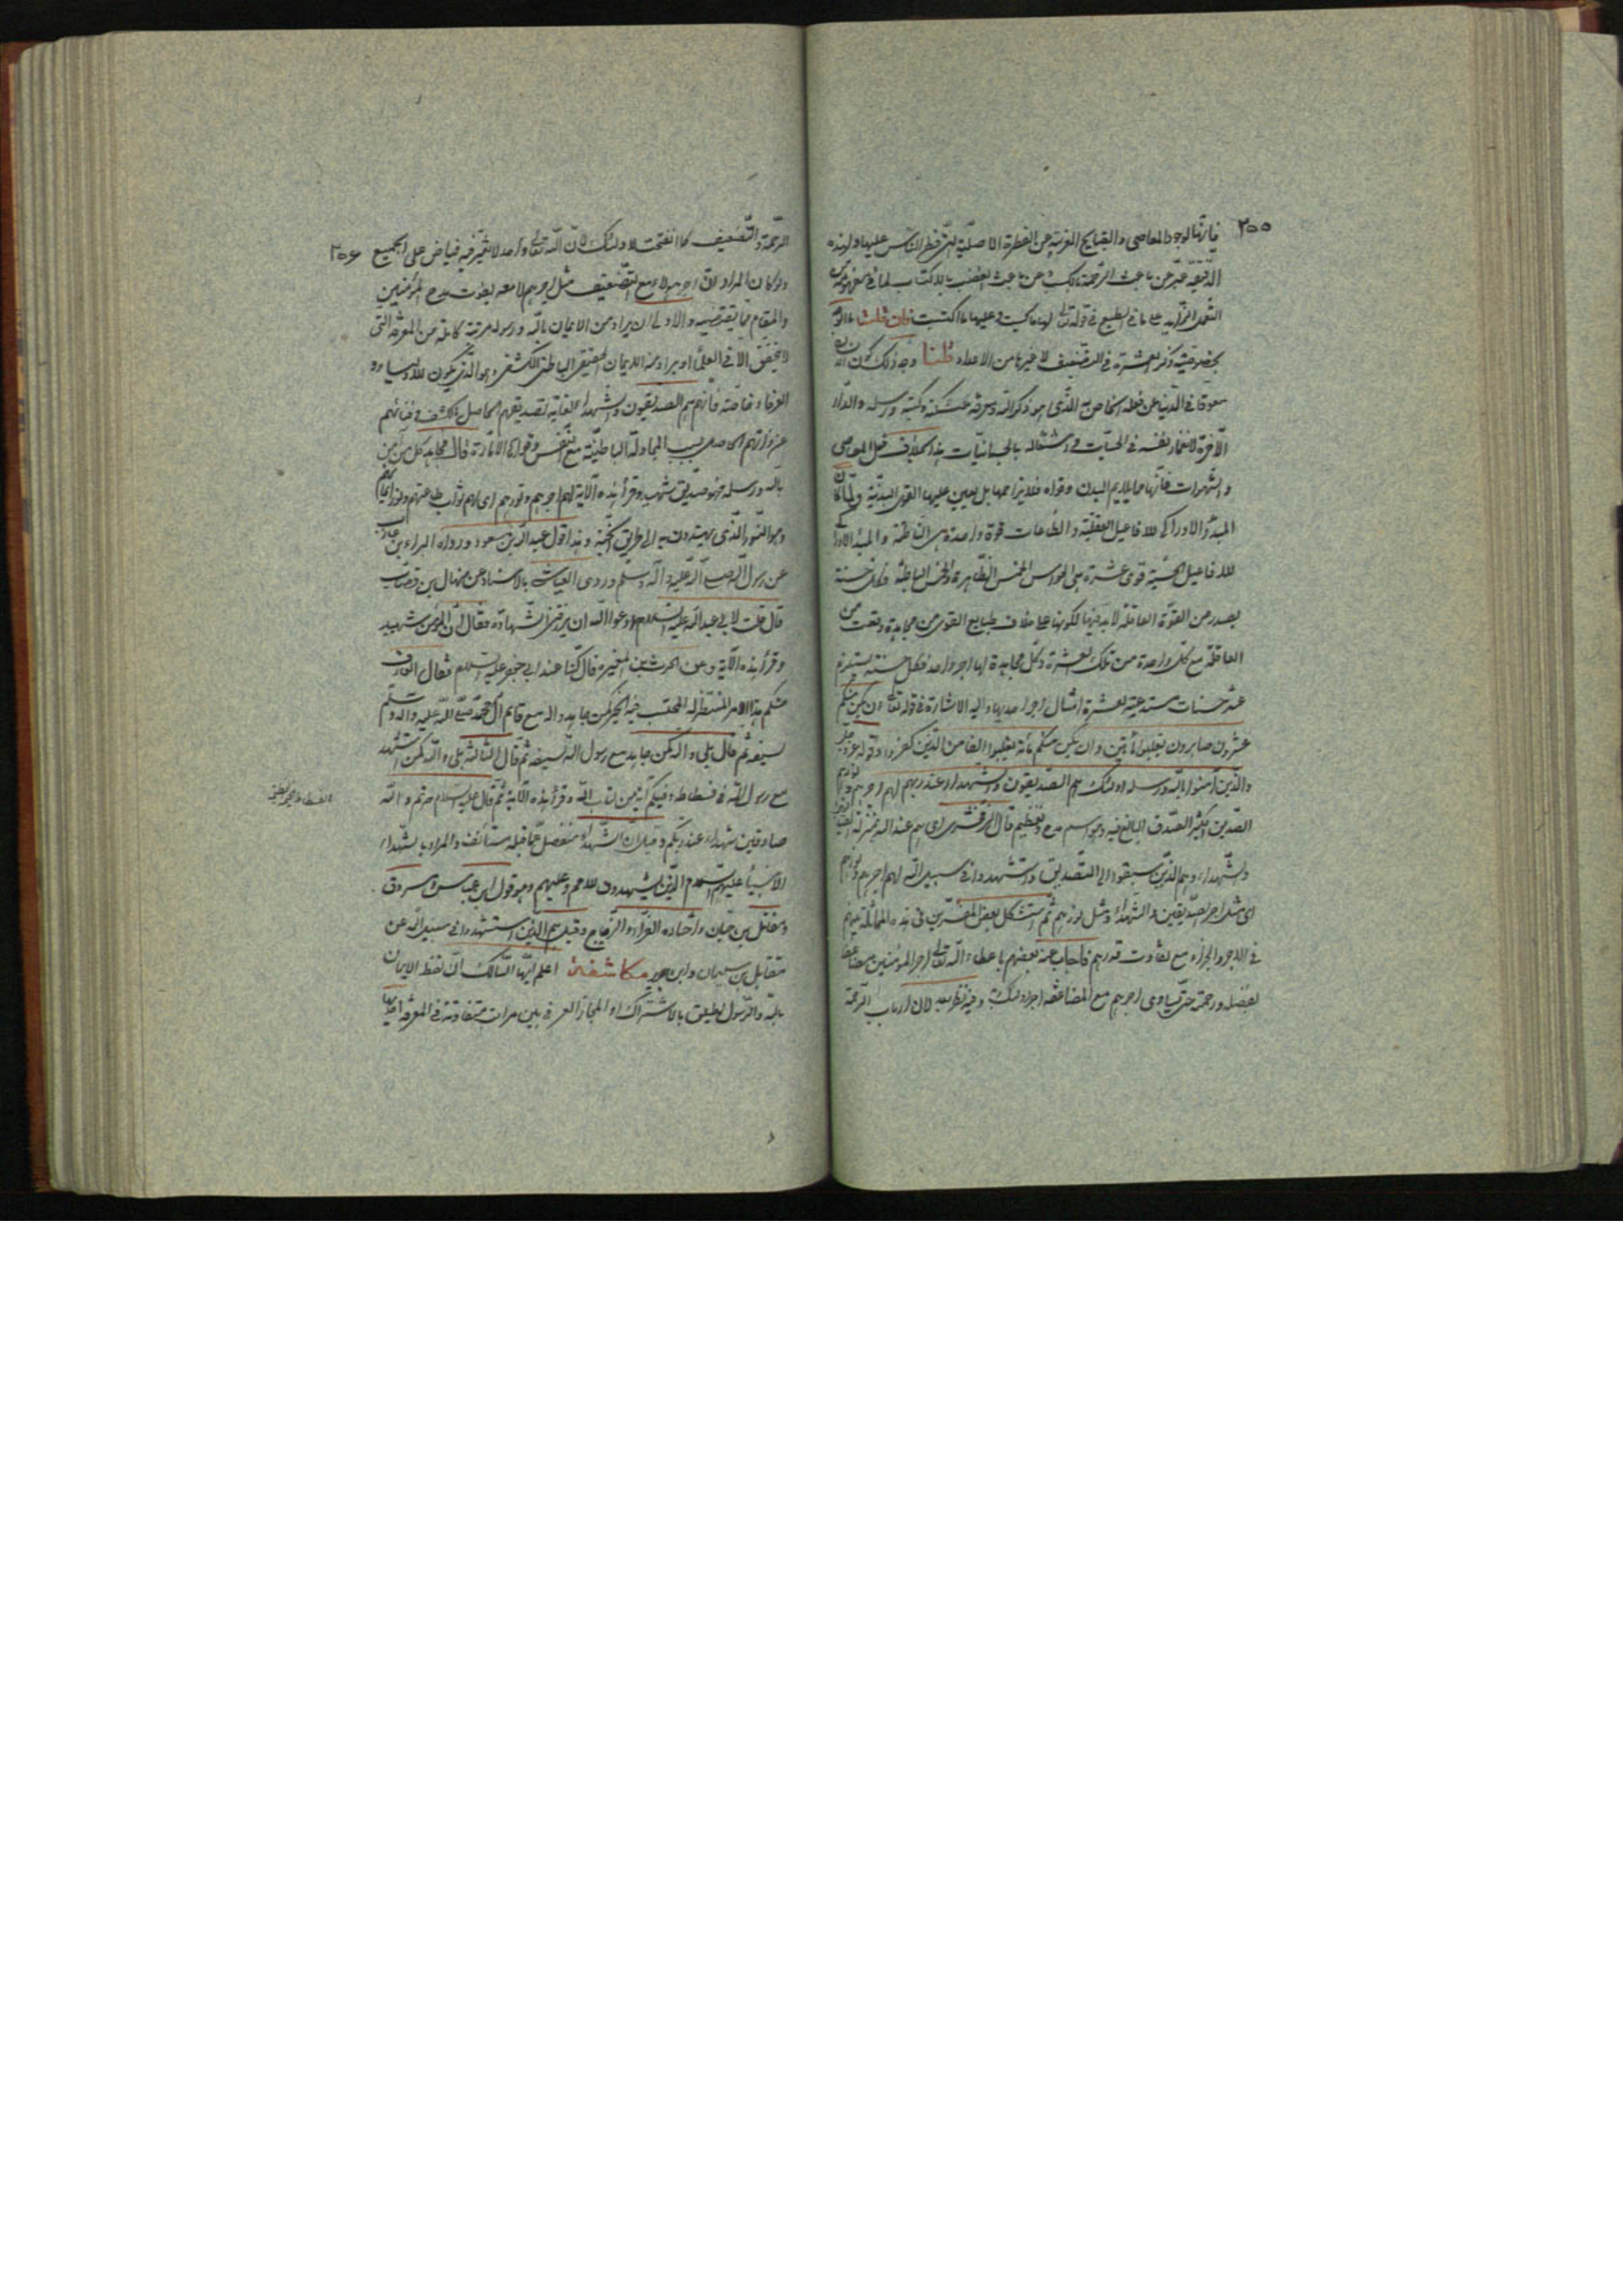 ٢٥٥
فإنها لوجود المعاصي والقبايح المغيرة عن الفطرة الاصلية التي فطر الناس عليها ولهذه
الدقيقة عبر عن باعث الرحمة بالكسب وعن باعث الغضب بالاكتساب لما في مفهومه من
التعمل الزائد على ما في الطبع في قوله تعالى لها ما كسبت وعليها ما اكتسبت فإن قلت ما الوجه
بخصوصية ذكر العشرة في التضعيف لا غيرها من الاعداد قلنا وجه ذلك كون
معوقا في الدنيا عن فعله الخاص به الذي هو ذكر الله ومعرفة ملئكته وكتبه ورسله والدار
الآخرة لانغمار نفسه في الحسيات واشتغاله بالجسمانيات هذا بخلاف فعل المعاصي
والشهوات فانها مما يلايم البدن وقواه فلا يزاحمها بل يعين عليها القوى البدنية ولما كان
المبدأ الادراكي للافاعيل العقلية والطاعات قوة واحدة هي الناطقة والمبدأ الادراكي
للافاعيل الحسية قوى عشرة هي الحواس الخمس الظاهرة والخمس الباطنة فكل حسنة
يصدر من القوة العاقلة لابد فيها لكونها على خلاف طبايع القوى من مجاهدة وقعت من
العاقلة مع كل واحدة من تلك العشرة وكل مجاهدة لها اجر واحد فكل حسنة يستلزم
عشر حسنات مستدعية لعشرة امثال اجر واحد بها واليه الاشارة في قوله تعالى ان يكن منكم
عشرون صابرون يغلبوا مأتين وان يكن منكم مأة يغلبوا الفا من الذين كفروا وقوله عز وجل
والذين آمنوا بالله ورسله اولئك هم الصديقون والشهداء عند ربهم لهم اجرهم ونورهم
الصديق الكثير الصدق البالغ فيه وهو اسم مدح وتعظيم قال الزمخشري اي هم عند الله بمنزلة الصديقين
والشهداء وهم الذين سبقوا الى التصديق واستشهدوا في سبيل الله لهم اجرهم ونورهم
اي مثل اجر الصديقين والشهداء ومثل نورهم ثم استشكل بعض المفسرين في هذه المماثلة بينهم
في الاجر والجزاء مع تفاوت قدرهم فاجاب عنه بعضهم باعطاء الله تعالى اجر المؤمنين مضاعفا
بفضله ورحمته حتى يساوي اجرهم مع المضاعفة اجر اولئك وفيه نظر بعد لان ارباب الرحمة
٢٥٦
الرحمة والتضعيف كما انفتحت لاولئك لان الله تعالى واحد لا تغير فيه فياض على الجميع
ولو كان المراد ان اجر هؤلاء مع التضعيف مثل اجرهم لا معه يفوت مدح المؤمنين
والمقام مما يقتضيه والاولى ان يراد من الايمان بالله ورسوله مرتبة كاملة من المعرفة التي
لا يتحقق الا في العلماء او يراد منه الايمان الحقيقي الباطني الكشفي وهو الذي يكون للاولياء و
العرفاء خاصة فانهم هم الصديقون والشهداء لغاية تصديقهم الحاصل بالكشف وفنائهم
عن ذواتهم الحاصل بسبب المجاهدة الباطنية مع النفس وقواها الامارة قال مجاهد كل من آمن
بالله ورسله فهو صديق وشهيد وقرأ هذه الآية لهم اجرهم ونورهم اي لهم ثواب طاعتهم ونور ايمانهم
وهو النور الذي يهتدون به الى طريق الجنة وهذا قول عبد الله بن مسعود ورواه البراء بن عازب
عن رسول الله صلى الله عليه وآله وسلم وروى العياشي بالاسناد عن منهال بن قصاب
قال قلت لابي عبد الله عليه السلام ادعو الله ان يرزقني الشهادة فقال ان المؤمن شهيد
وقرأ هذه الآية وعن الحرث بن المغيرة قال كنا عند ابي جعفر عليه السلام فقال العارف
منكم هذا الامر المنتظر له المحتسب فيه الخير كمن جاهد والله مع قائم آل محمد صلى الله عليه وآله وسلم
بسيفه ثم قال بلى والله كمن جاهد مع رسول الله بسيفه ثم قال الثالثة بلى والله كمن استشهد
مع رسول الله في فسطاطه وفيكم آية من كتاب الله وقرأ هذه الآية ثم قال عليه السلام صرتم والله
صادقين شهداء عند ربكم وقيل ان الشهداء منفصل عما قبله مستأنف والمراد بالشهداء
الانبياء عليهم السلام الذين يشهدون للامم وعليهم وهو قول ابن عباس ومسروق
ومقاتل بن حيان واختاره الفراء والزجاج وقيل هم الذين استشهدوا في سبيل الله عن
مقاتل بن سليمان وابن جرير مكاشفة اعلم ايها السالك ان لفظ الايمان
بالله والرسول يطلق بالاشتراك او المجاز العرفي بين مراتب متفاوتة في المعرفة